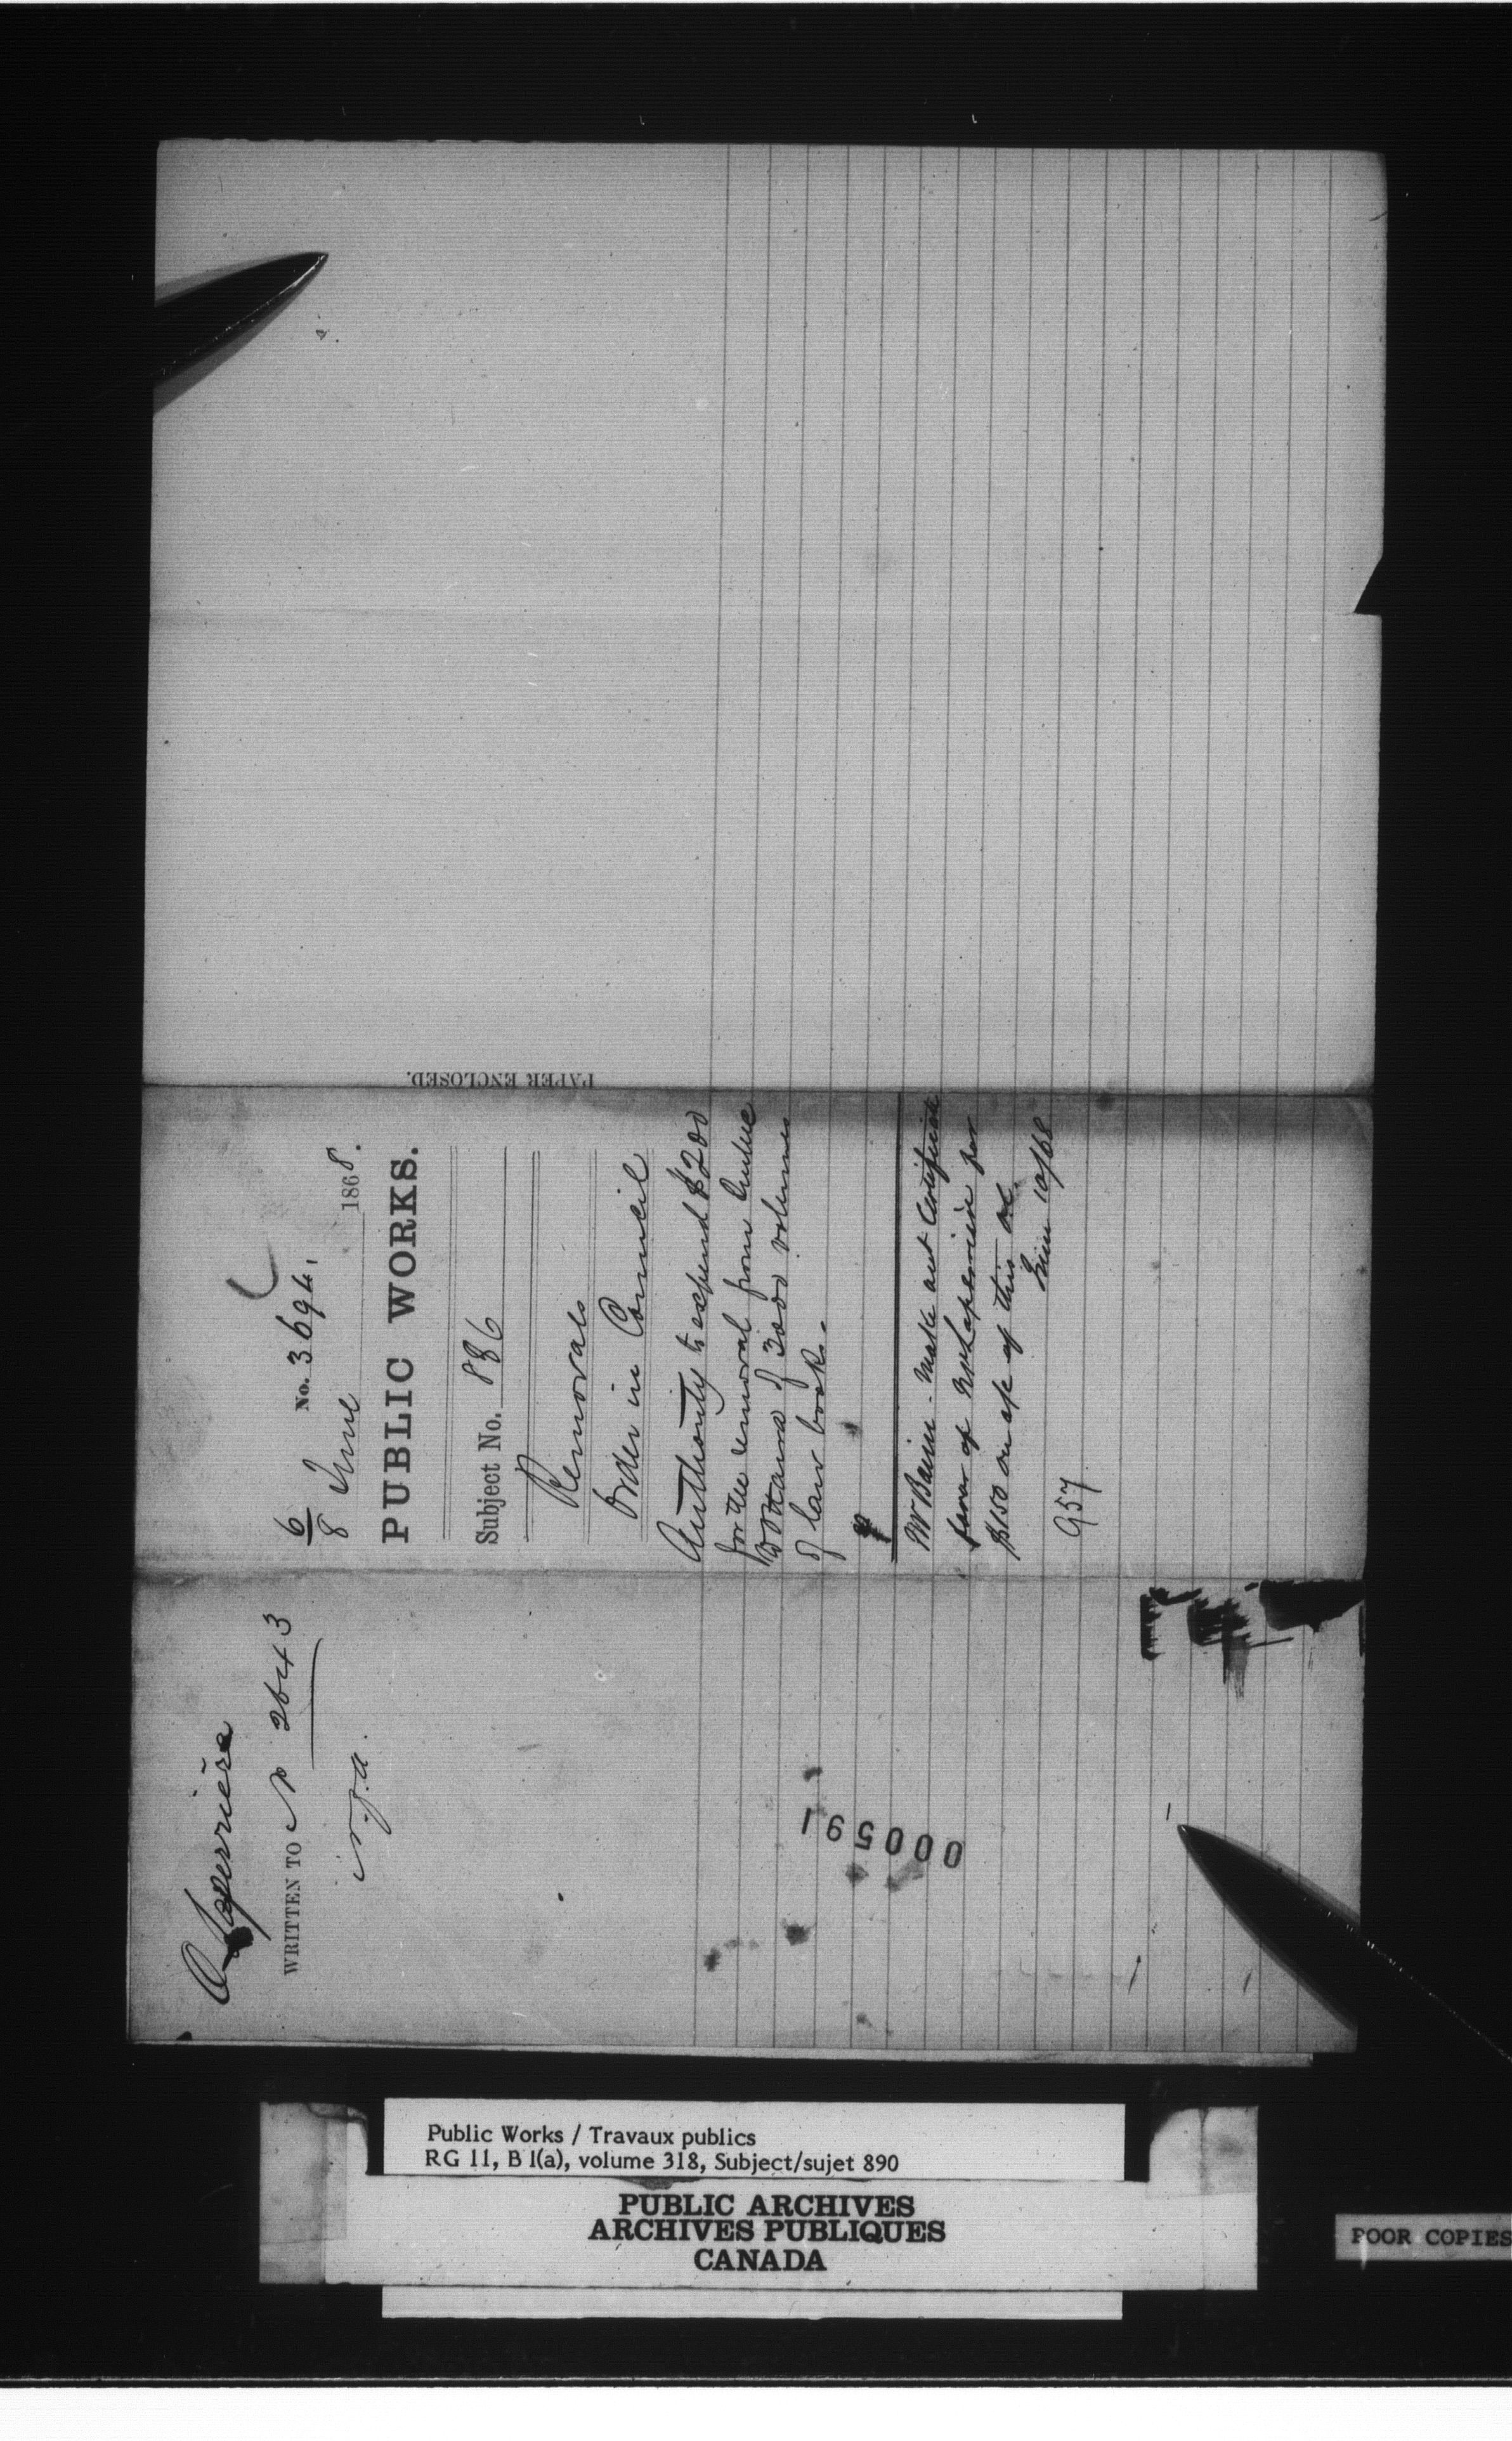 A Laperrière
WRITTEN TO N 2643
6/8 No. 3694.
June 1868.
PUBLIC WORKS.
Subject No. 886
Removals
Order in Council
Authority to expend $200
for the removal from Quebec
to Ottawa of 3000 volumes
of law books.
Mr Baine - Make out Certificate
favor of Mr Laperrière for
$150 on a/c of this OC.
June 10/68
957
PAPER ENCLOSED.
000591
Public Works / Travaux publics
RG 11, B 1(a), volume 318, Subject/sujet 890
PUBLIC ARCHIVES
ARCHIVES PUBLIQUES
CANADA
POOR COPIES